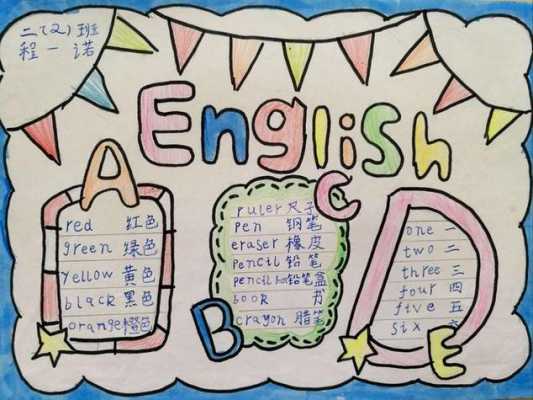 二(2)班
程一诺
English
A
red 红色
green 绿色
yellow 黄色
black 黑色
orange 橙色
B
C
ruler 尺子
pen 钢笔
eraser 橡皮
pencil 铅笔
pencil box 铅笔盒
book
crayon 腊笔
D
one 一
two 二
three 三
four 四
five 五
six 六
E